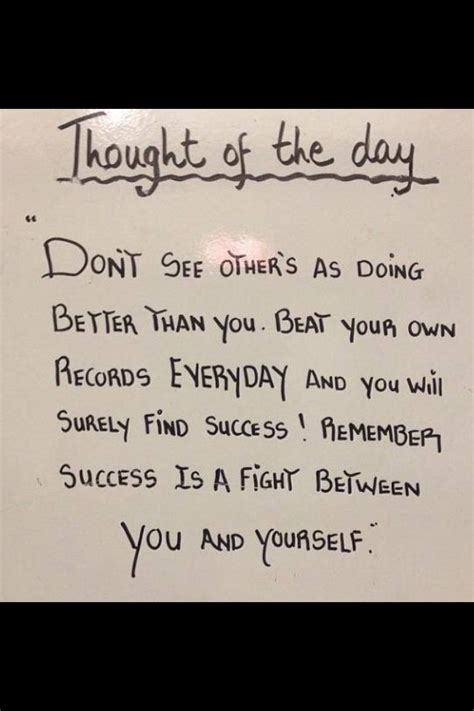 Thought of the day
"
DON'T SEE OTHER'S AS DOING
BETTER THAN YOU. BEAT YOUR OWN
RECORDS EVERYDAY AND YOU WILL
SURELY FIND SUCCESS! REMEMBER
SUCCESS IS A FIGHT BETWEEN
YOU AND YOURSELF."